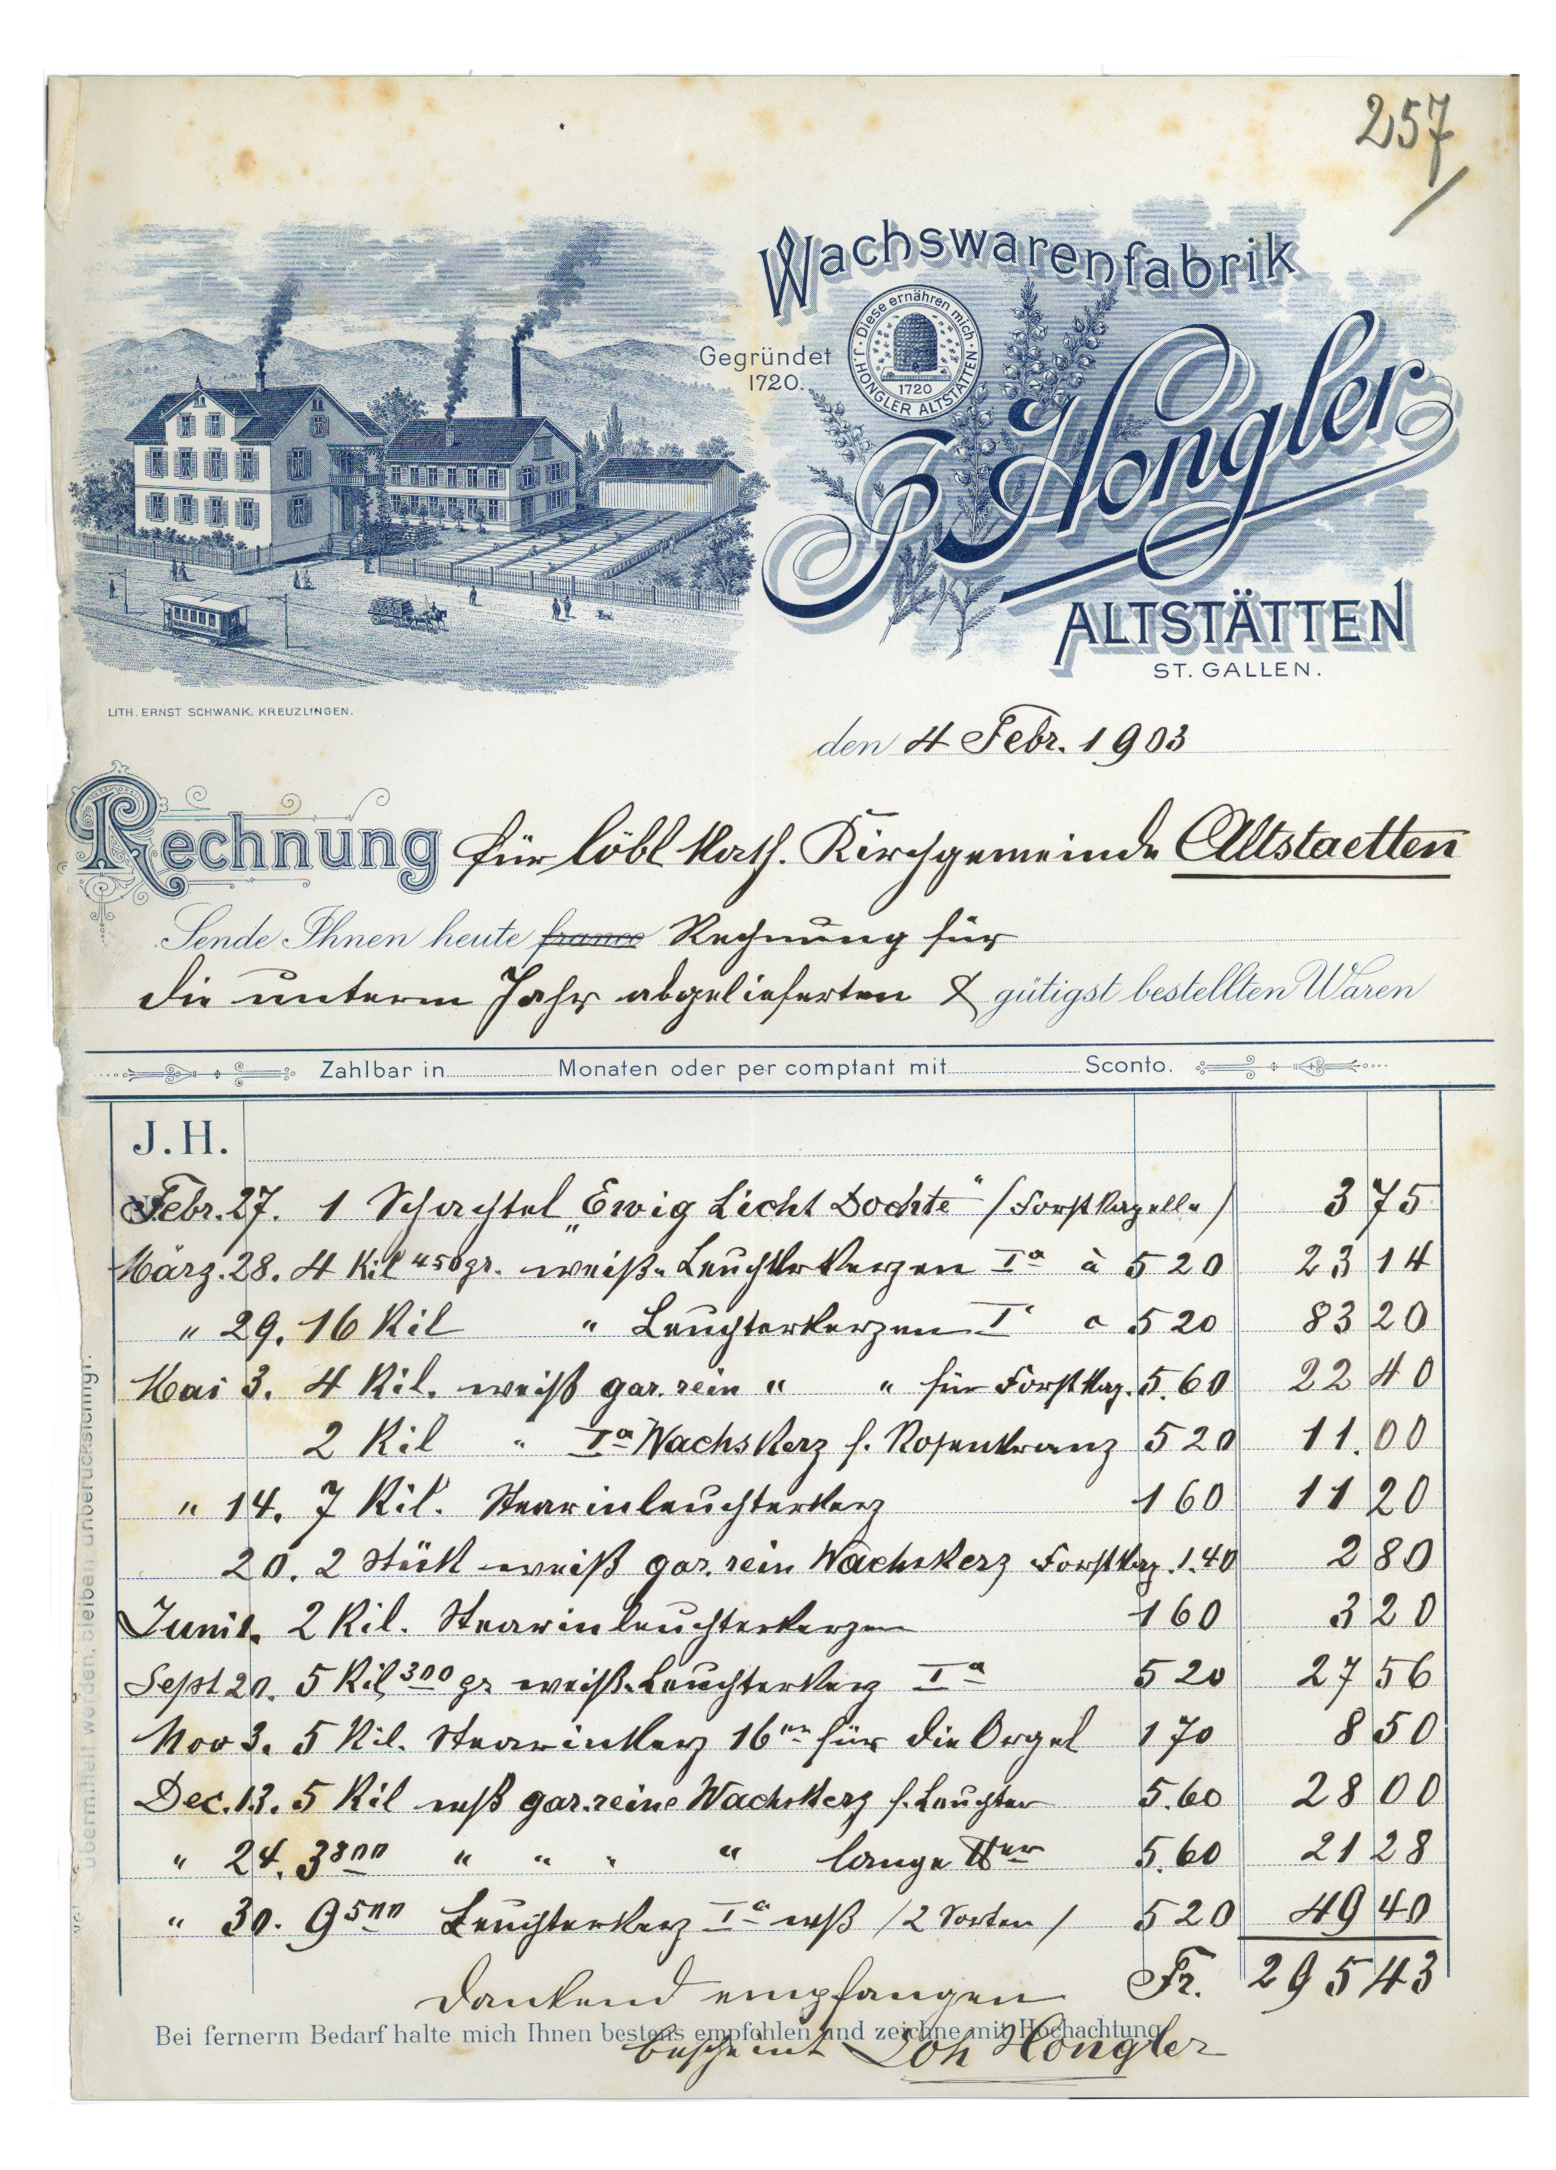 257
Wachswarenfabrik
Diese ernähren mich · J. HONGLER ALTSTÄTTEN ·
1720
Gegründet
1720.
J. Hongler
ALTSTÄTTEN
ST. GALLEN.
LITH. ERNST SCHWANK, KREUZLINGEN.
den 4 Febr. 1903
Rechnung für löbl. Kath. Kirchgemeinde Altstaetten
Sende Ihnen heute franco Rechnung für
die unterm Jahr abgelieferten & gütigst bestellten Waren
Zahlbar in Monaten oder per comptant mit Sconto.
J. H.
Febr. 27. 1 Schachtel „Ewig Licht Dochte" / Forstkapelle / 3 75
März. 28. 4 Kil 450 gr. weiß. Leuchterkerzen Iª à 5 20 23 14
" 29. 16 Kil " Leuchterkerzen I a 5 20 83 20
Mai 3. 4 Kil. weiß gar. rein " " für Forstkap. 5.60 22 40
2 Kil " Iª Wachskerz f. Rosenkranz 5 20 11.00
" 14. 7 Kil. Stearinleuchterkerz 1 60 11 20
20. 2 Stück weiß gar. rein Wachskerz Forstkap. 1.40 2 80
Juni 1. 2 Kil. Stearinleuchterkerzen 1 60 3 20
Sept 20. 5 Kil 300 gr weiß. Leuchterkerz Iª 5 20 27 56
Nov 3. 5 Kil. Stearinkerz 16er für die Orgel 1 70 8 50
Dec. 13. 5 Kil wß gar. reine Wachskerz f. Leuchter 5.60 28 00
" 24. 3 800 " " " " lange 5.60 21 28
" 30. 9 500 Leuchterkerz Iª wß / 2 Sorten / 5 20 49 40
Fr. 295 43
dankend empfangen
Bei fernerm Bedarf halte mich Ihnen bestens empfohlen und zeichne mit Hochachtung
bescheint Joh Hongler
übermittelt werden, bleiben unberücksichtigt.